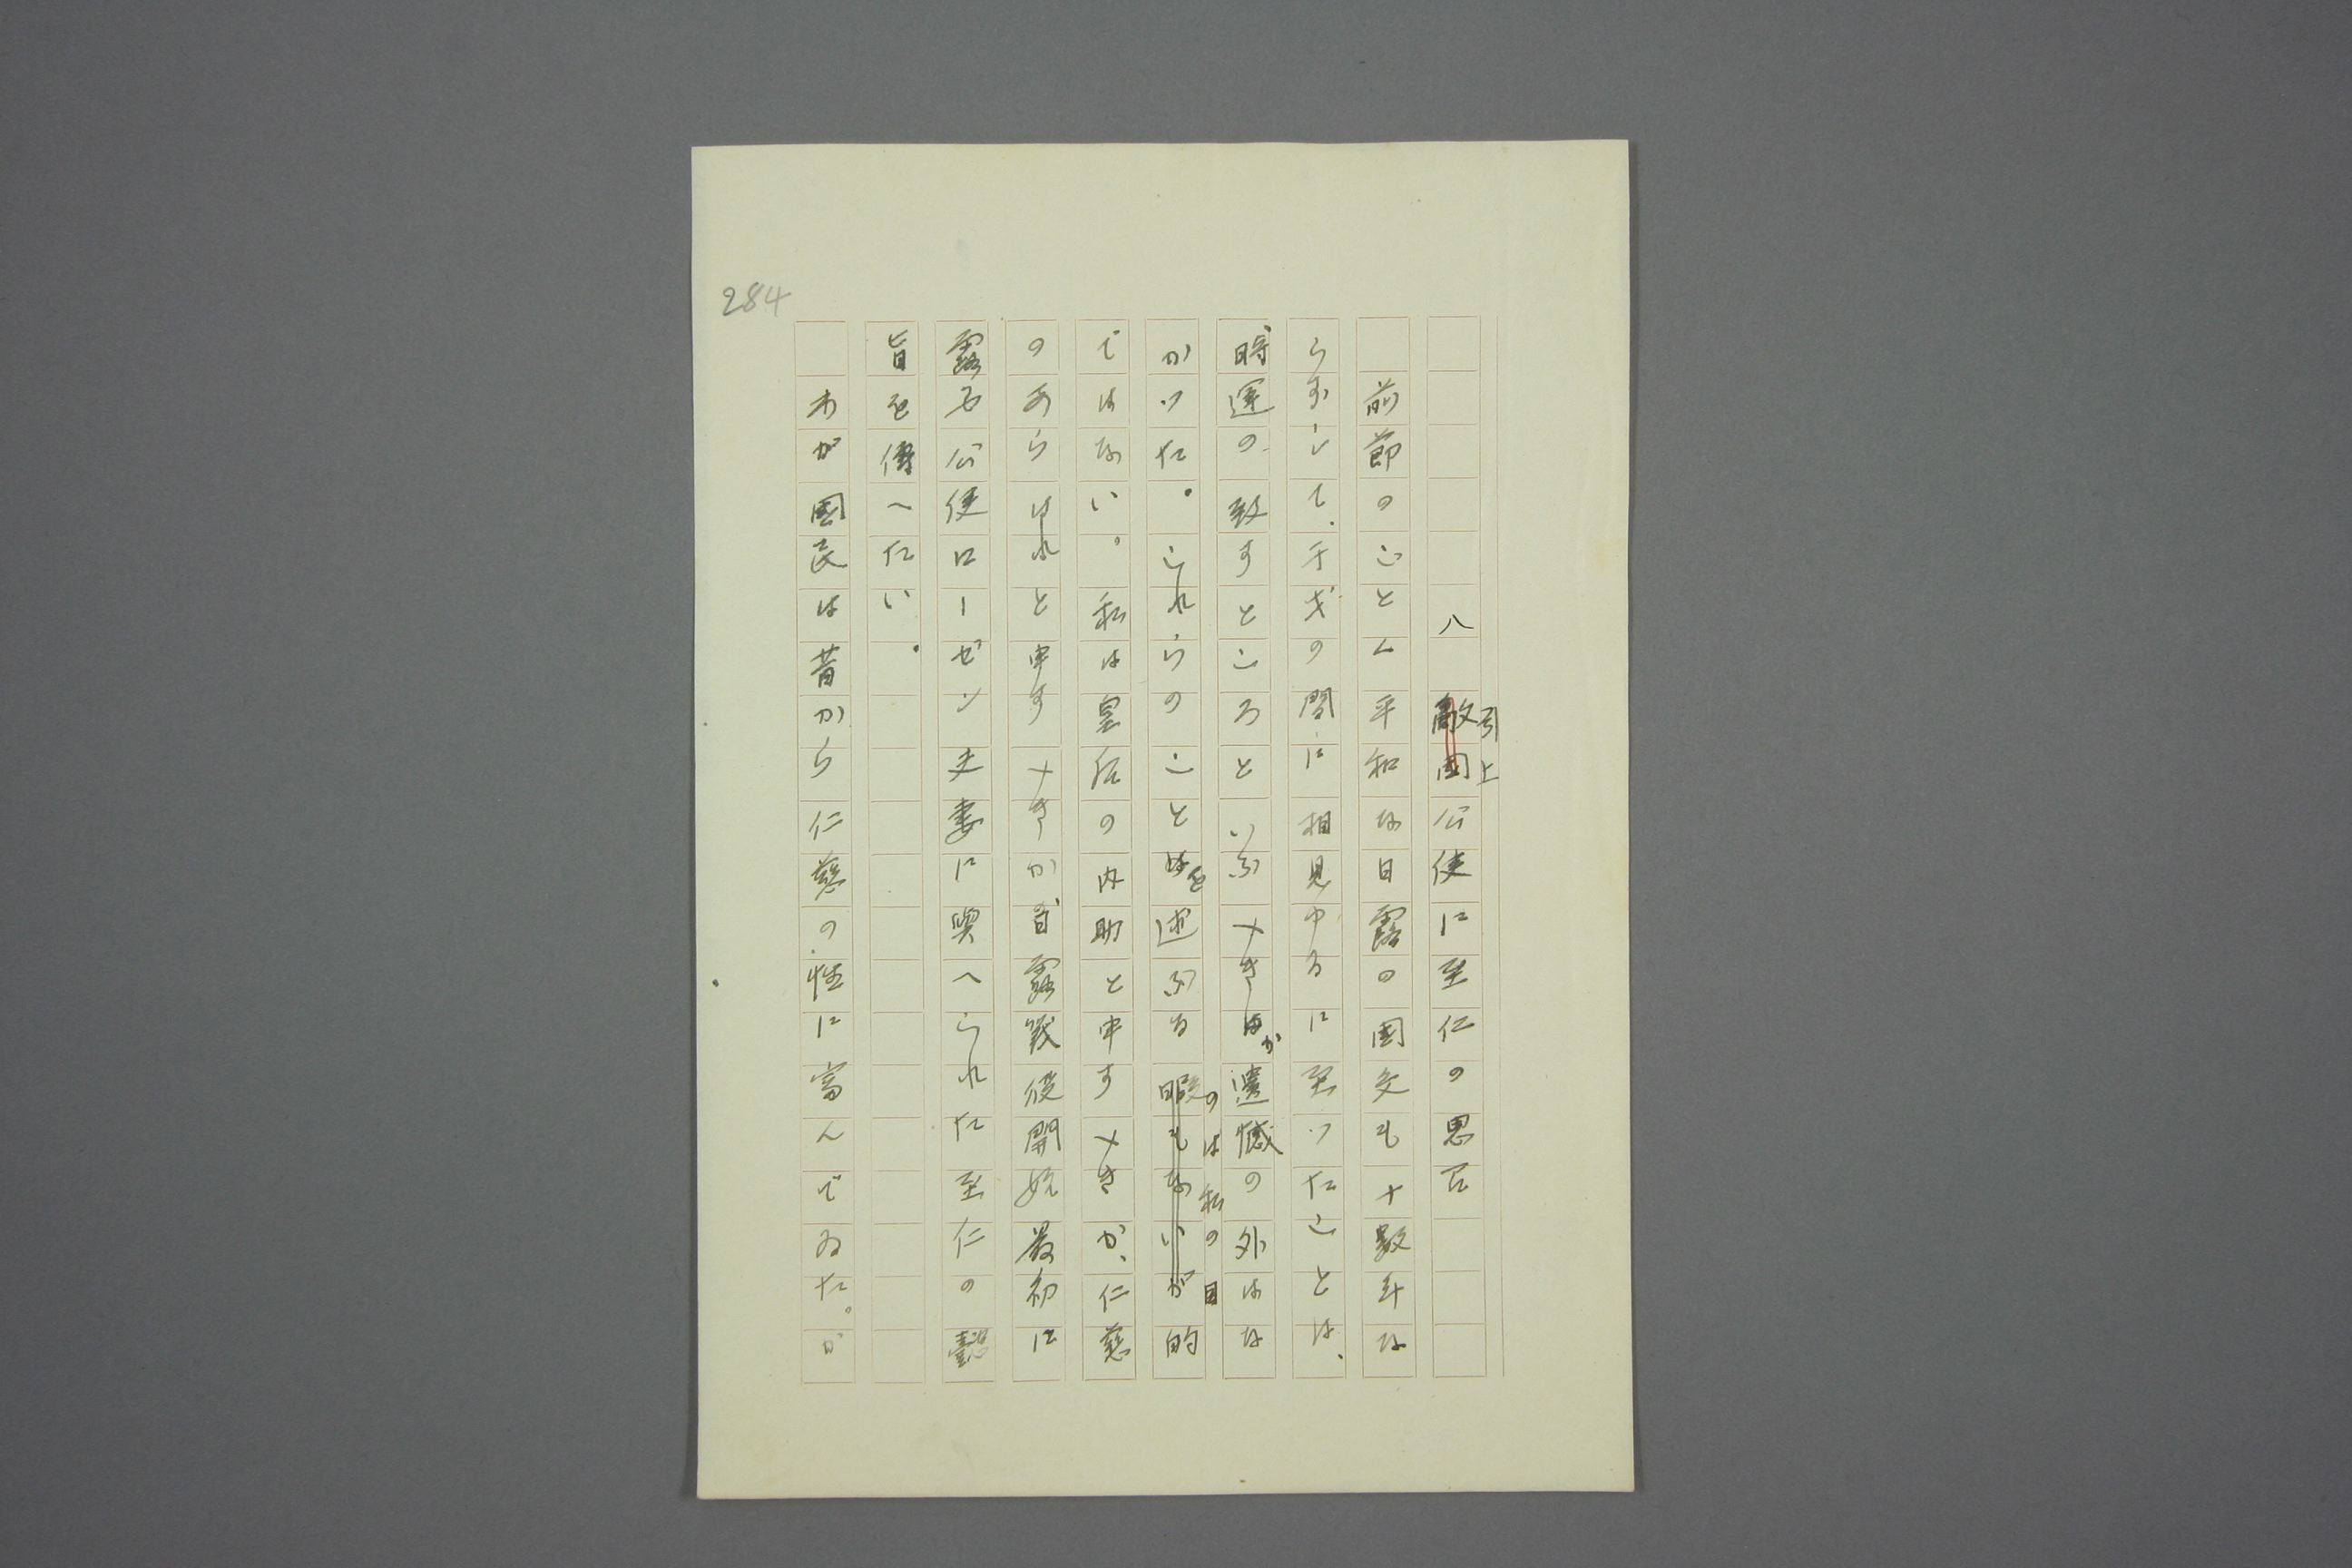 284
八 敵国引上公使に至仁の思召
前節のごとく平和な日露の国交も十数年な
らずして、干戈の間に相見ゆるに至つたことは、
時運の致すところといふべきはか遺憾の外はな
かつた。これらのことはを述ぶる暇もないがのは私の目的
ではない。私は皇后の内助と申すべきか、仁慈
のあらはれと申すべきか日露戦役開始最初に
露公使ローゼン夫妻に與へられた至仁の懿
旨を傳へたい。
わが國民は昔から仁慈の性に富んでゐた。が